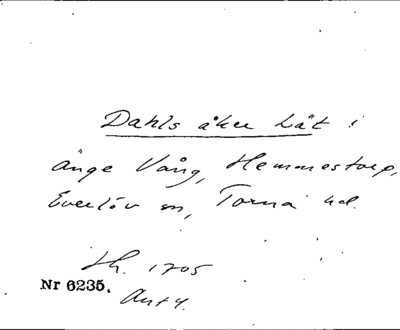 Dahls åker Låt i
Änge Vång, Hemmestorp,
Everlöv sn, Torna hd.
Lh. 1705
Nr 6235.
Ant 4.